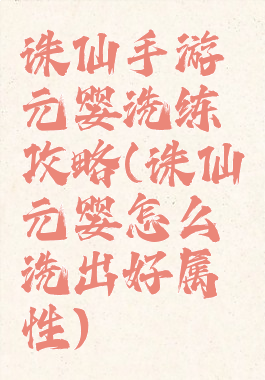 诛仙手游
元婴洗练
攻略(诛仙
元婴怎么
洗出好属
性)